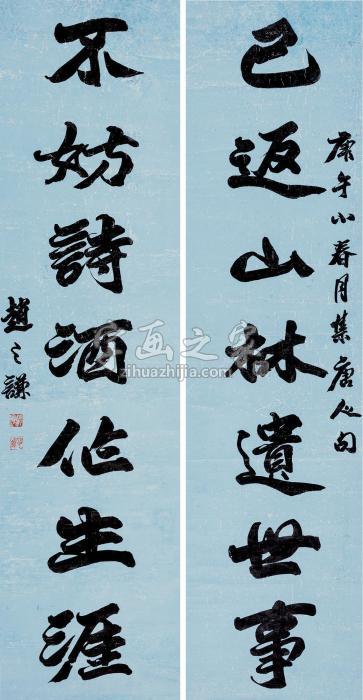 已返山林遺世事
庚午小春月集唐人句
不妨詩酒作生涯
趙之謙
字画之家
zihuazhijia.com